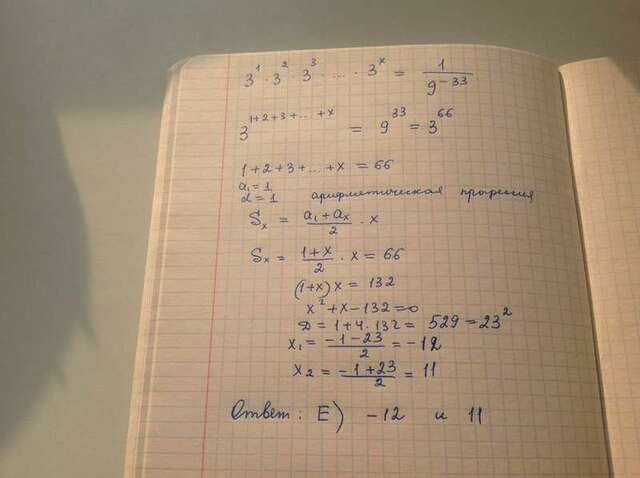 3¹ · 3² · 3³ · ... · 3ˣ = 1/9⁻³³
3¹⁺²⁺³⁺···⁺ˣ = 9³³ = 3⁶⁶
1+2+3+...+x = 66
a₁ = 1
d = 1 арифметическая прогрессия
Sₓ = (a₁ + aₓ)/2 · x
Sₓ = (1+x)/2 · x = 66
(1+x)x = 132
x² + x - 132 = 0
D = 1 + 4 · 132 = 529 = 23²
x₁ = (-1-23)/2 = -12
x₂ = (-1+23)/2 = 11
Ответ: E) -12 и 11